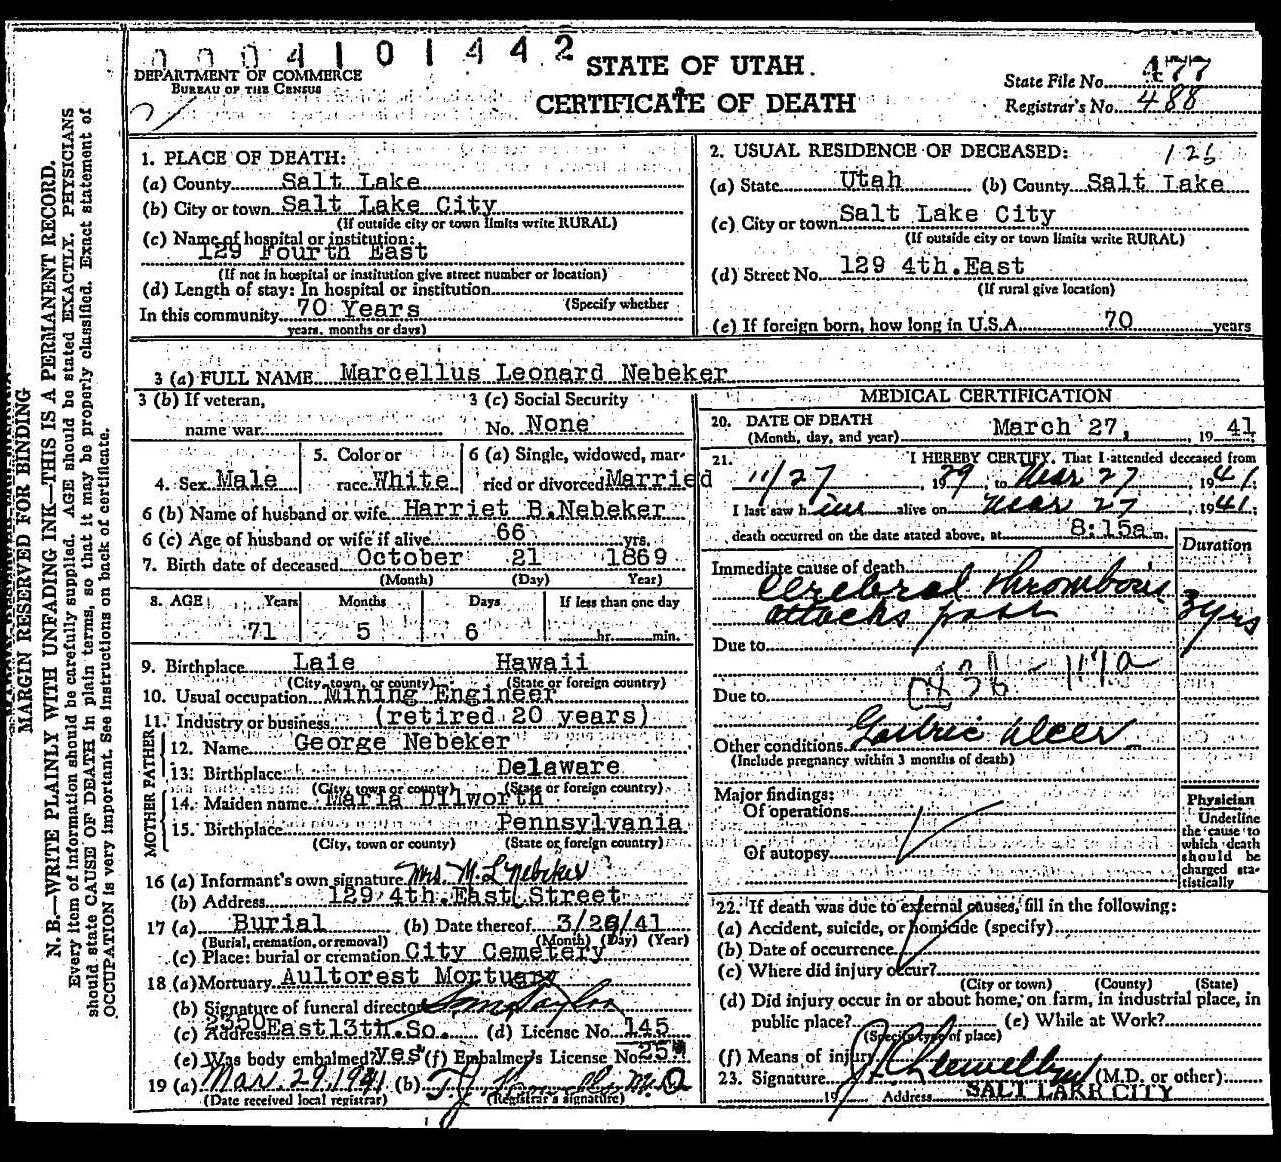 0004101442
DEPARTMENT OF COMMERCE
BUREAU OF THE CENSUS
STATE OF UTAH
CERTIFICATE OF DEATH
State File No. 477
Registrar's No. 488
MARGIN RESERVED FOR BINDING
N. B.—WRITE PLAINLY WITH UNFADING INK—THIS IS A PERMANENT RECORD.
Every item of information should be carefully supplied. AGE should be stated EXACTLY. PHYSICIANS
should state CAUSE OF DEATH in plain terms, so that it may be properly classified. Exact statement of
OCCUPATION is very important. See instructions on back of certificate.
1. PLACE OF DEATH:
(a) County Salt Lake
(b) City or town Salt Lake City
(If outside city or town limits write RURAL)
(c) Name of hospital or institution:
129 Fourth East
(If not in hospital or institution give street number or location)
(d) Length of stay: In hospital or institution
(Specify whether
In this community 70 Years
years, months or days)
2. USUAL RESIDENCE OF DECEASED:
(a) State Utah (b) County Salt Lake
(c) City or town Salt Lake City
(If outside city or town limits write RURAL)
(d) Street No. 129 4th.East
(If rural give location)
(e) If foreign born, how long in U.S.A. 70 years
3 (a) FULL NAME Marcellus Leonard Nebeker
3 (b) If veteran,
name war
3 (c) Social Security
No. None
4. Sex Male
5. Color or
race White
6 (a) Single, widowed, mar-
ried or divorced Married
6 (b) Name of husband or wife Harriet B.Nebeker
6 (c) Age of husband or wife if alive 66 yrs.
7. Birth date of deceased October 21 1869
(Month) (Day) Year)
8. AGE Years Months Days If less than one day
71 5 6 hr. min.
9. Birthplace Laie Hawaii
(City, town, or county) (State or foreign country)
10. Usual occupation Mining Engineer
11. Industry or business (retired 20 years)
FATHER
12. Name George Nebeker
13. Birthplace Delaware
(City, town or county) (State or foreign country)
MOTHER
14. Maiden name Maria Dilworth
15. Birthplace Pennsylvania
(City, town or county) (State or foreign country)
16 (a) Informant's own signature Mrs. M. L Nebeker
(b) Address 129 4th.East Street
17 (a) Burial (b) Date thereof
(Burial, cremation, or removal) (Month) (Day) (Year)
(c) Place: burial or cremation City Cemetery
18 (a) Mortuary Aultorest Mortuary
(b) Signature of funeral director
(c) Address 2350 East 13th.So. (d) License No. 145
(e) Was body embalmed? Yes (f) Embalmer's License No.
19 (a) Mar. 29, 1941 (b)
(Date received local registrar) (Registrar's signature)
MEDICAL CERTIFICATION
20. DATE OF DEATH
(Month, day, and year) March 27, 1941
21. I HEREBY CERTIFY, That I attended deceased from
11/27, 1939, to Mar 27 1941;
I last saw him alive on Mar 27 1941;
death occurred on the date stated above, at 8:15a m.
Duration
Immediate cause of death
Cerebral thrombosis
attacks past 3 yrs
Due to
Due to
Other conditions Gastric Ulcer
(Include pregnancy within 3 months of death)
Major findings:
Of operations
Of autopsy
Physician
Underline
the cause to
which death
should be
charged sta-
tistically
22. If death was due to external causes, fill in the following:
(a) Accident, suicide, or homicide (specify)
(b) Date of occurrence
(c) Where did injury occur?
(City or town) (County) (State)
(d) Did injury occur in or about home, on farm, in industrial place, in
public place? (e) While at Work?
(Specify type of place)
(f) Means of injury
23. Signature (M.D. or other)
19 Address SALT LAKE CITY